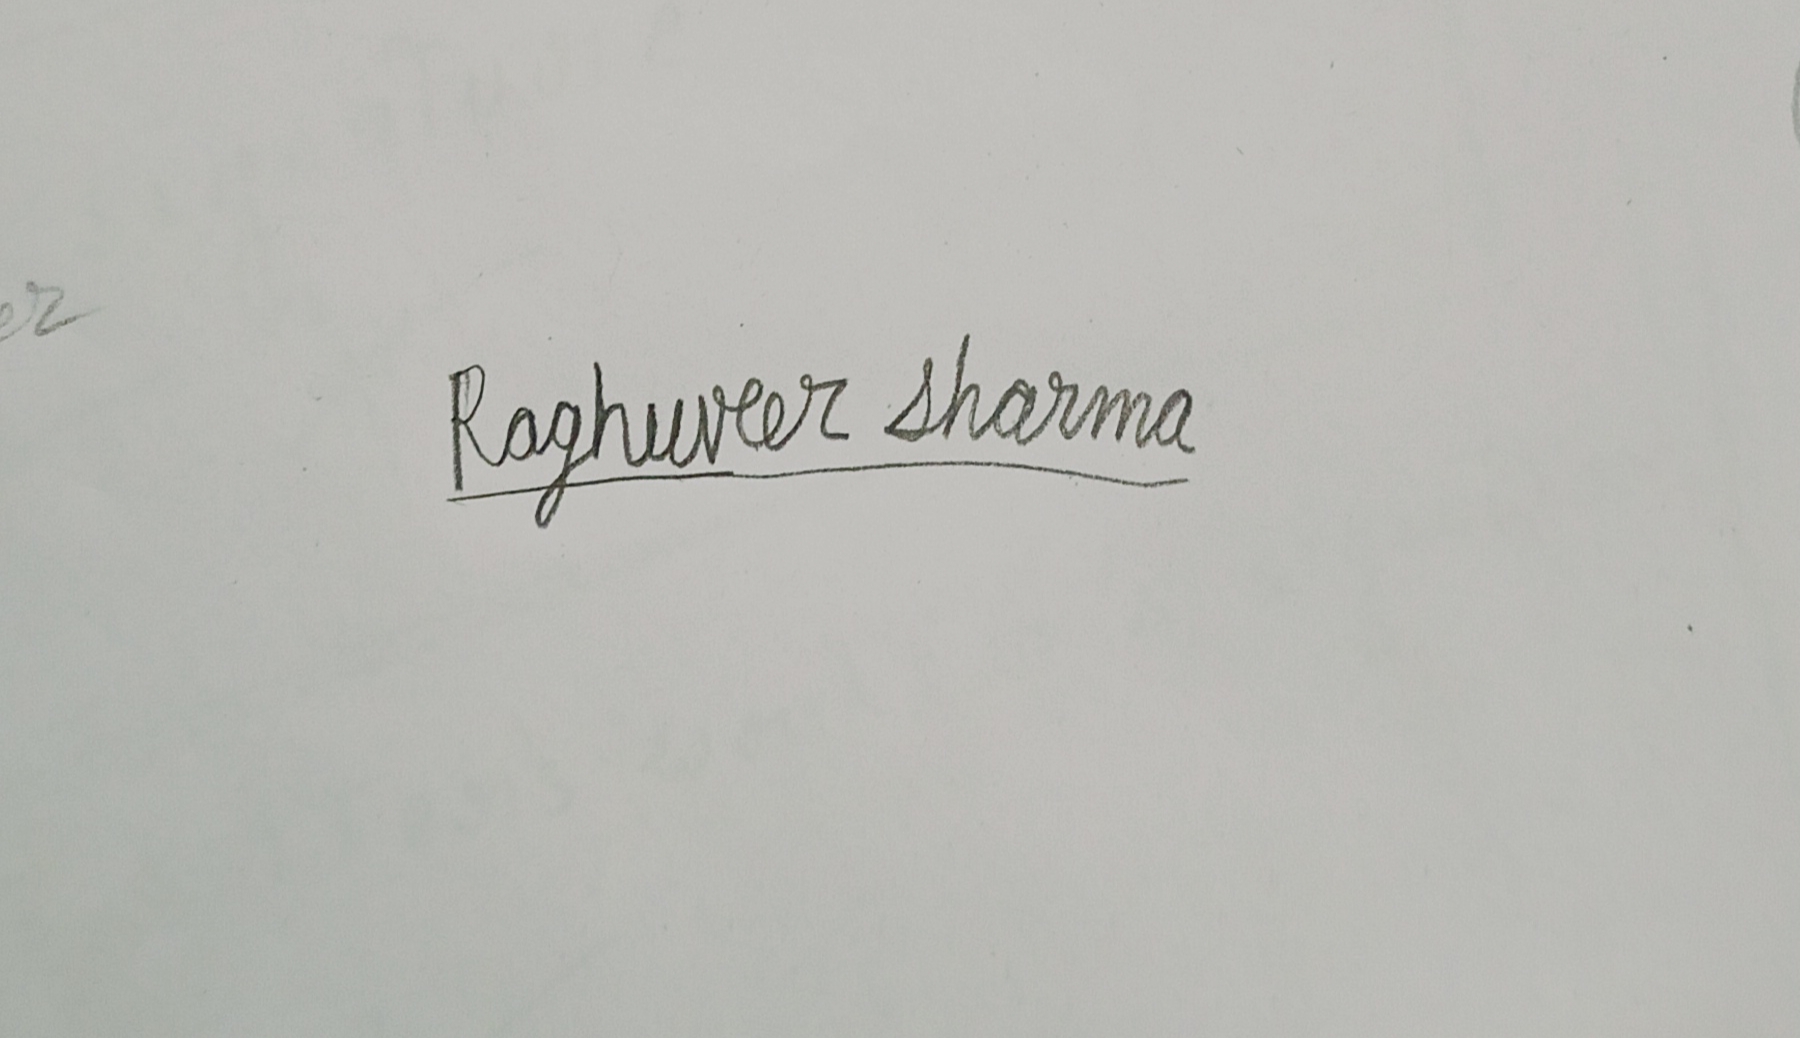 Raghuveer sharma